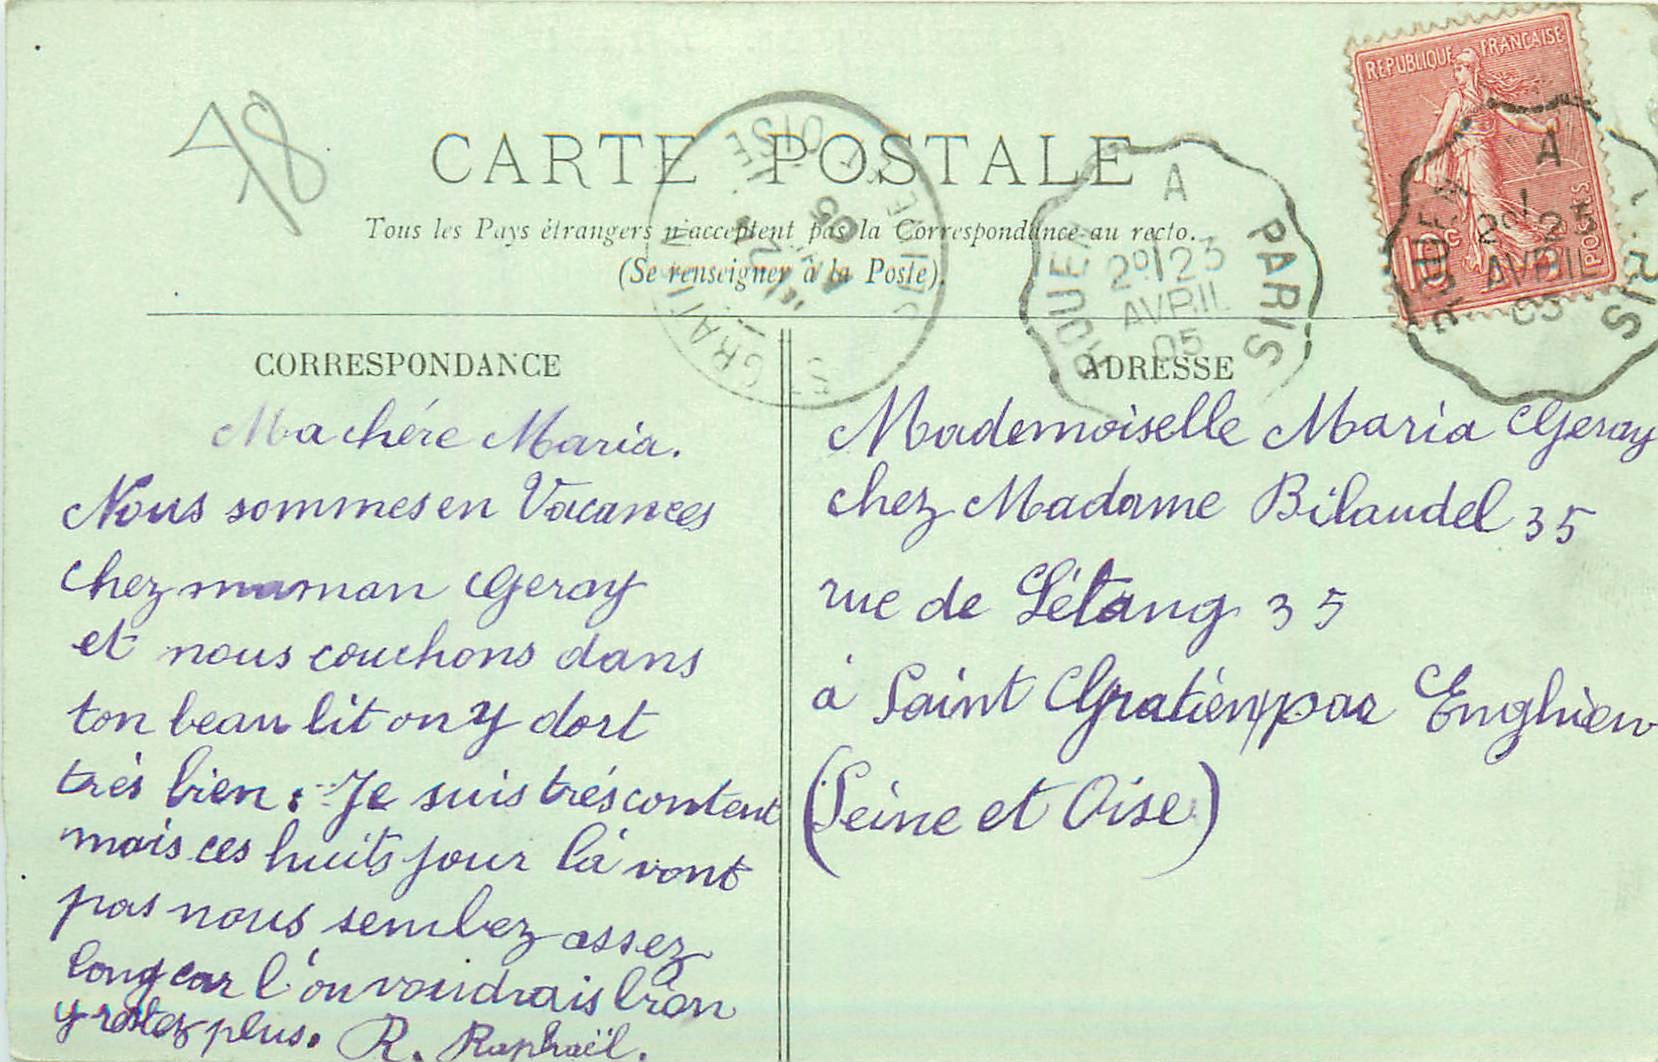 48
REPUBLIQUE FRANCAISE
10c
POSTES
CARTE POSTALE
Tous les Pays étrangers n'acceptent pas la Correspondance au recto.
(Se renseigner à la Poste).
ST GRATIEN
OISE
05
A
PARIS
AVRIL
05
A
AVRIL
05
CORRESPONDANCE
Ma chére Maria.
Nous sommes en Vacances
chez maman Geray
et nous couchons dans
ton beau lit on y dort
trés bien. Je suis trés content
mais ces huits jour là vont
pas nous semblez assez
long car l'on voudrais bien
y restez plus. R. Raphaël.
ADRESSE
Mademoiselle Maria Geray
chez Madame Bilaudel 35
rue de Létang 35
à Saint Gratien par Enghien
(Seine et Oise)